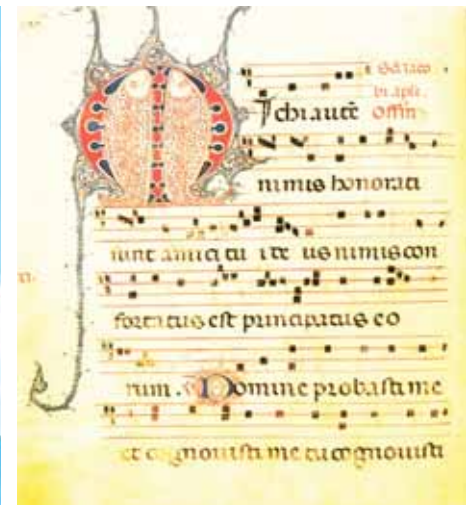 Michi autē
nimis honorati
sunt amici tui de us nimis con
fortatus est principatus eo
rum. Domine probasti me
et cognouisti me tu cognouisti